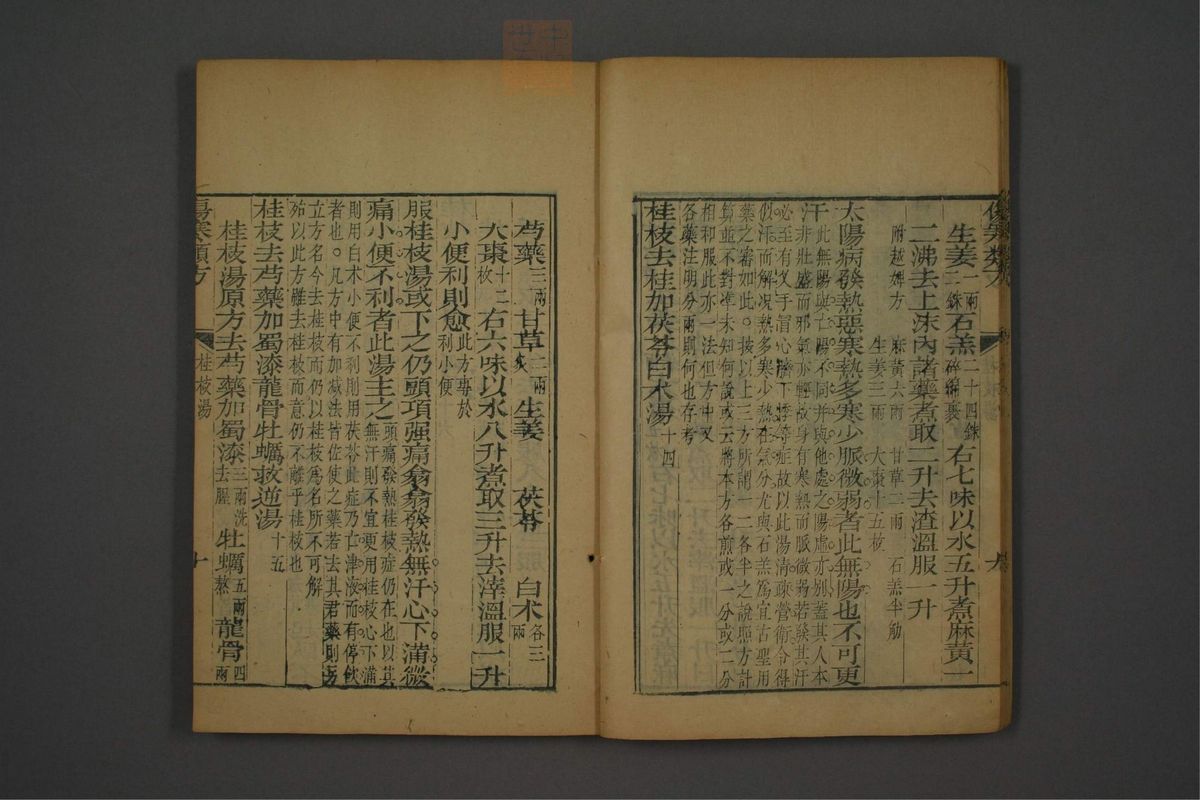 傷寒類方
生姜一兩二銖石羔二十四銖碎綿裹右七味以水五升煮麻黃一
二沸去上沫內諸藥煮取二升去渣溫服一升
附越婢方 麻黃六兩 甘草二兩 石羔半觔
生姜三兩 大棗十五枚
太陽病發熱惡寒熱多寒少脈微弱者此無陽也不可更
汗此無陽與亡陽不同并與他處之陽虛亦別蓋其人本
汗非壯盛而邪氣亦輕故身有寒熱而脈微弱若發其汗
必至有叉手冒心臍下悸等症故以此湯清疎營衛令得
似汗而解況熱多寒少熱在氣分尤與石羔爲宜古聖用
藥之審如此。按以上三方所謂一二各半之說照方計
算並不對準未知何說或云將本方各煎或一分或二分
相和服此亦一法但方中又
各藥注明分兩則何也存考
桂枝去桂加茯苓白术湯十四
芍藥三兩甘草二兩炙 生姜 茯苓 白术各三兩
大棗十二枚右六味以水八升煮取三升去滓溫服一升
小便利則愈此方專於利小便
服桂枝湯或下之仍頭項强痛翕翕發熱無汗心下滿微
痛小便不利者此湯主之頭痛發熱桂枝症仍在也以其無汗則不宜更用桂枝心下滿
則用白术小便不利則用茯苓此症乃亡津液而有停飲
者也。凡方中有加减法皆佐使之藥若去其君藥則另
立方名今去桂枝而仍以桂枝爲名所不可解
殆以此方雖去桂枝而意仍不離乎桂枝也
桂枝去芍藥加蜀漆龍骨牡蠣救逆湯十五
桂枝湯原方去芍藥加蜀漆三兩洗去腥 牡蠣五兩熬 龍骨四兩
傷寒類方 桂枝湯 十